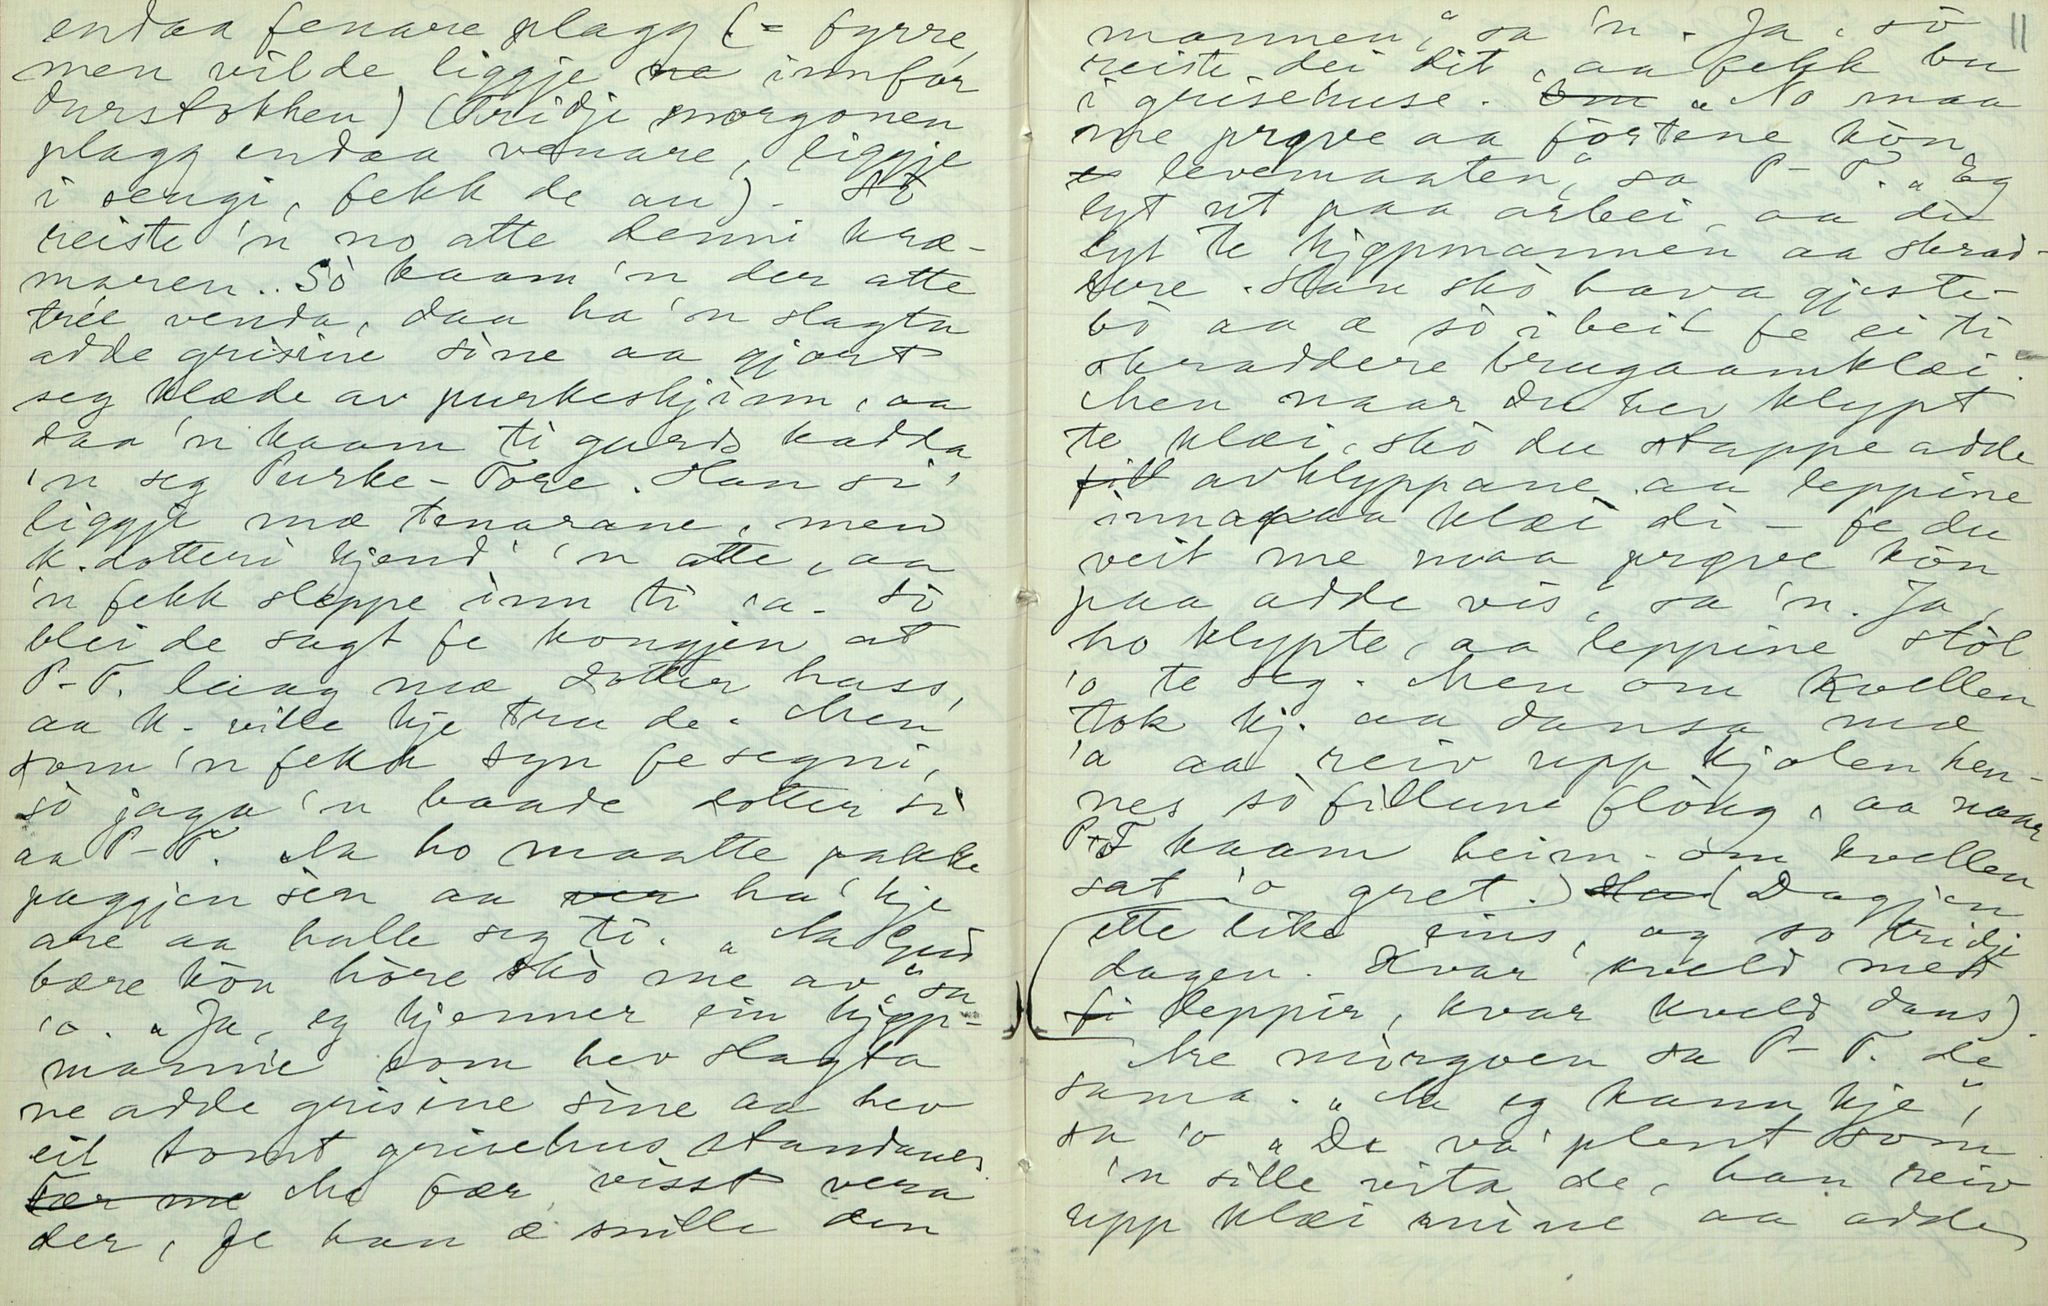 endaa fenare plagg (= fyrre,
men vilde liggje ne innfor
durstokken) (Tridje morgonen
plagg endaa venare, liggje
i sengi, fekk de au) - So
reiste 'n no atte denni kræ-
maren. Sò kaam 'n der atte
trèe venda, daa ha 'n slagta
adde grisine sine aa gjort
seg klæde av purkeskjinn, aa
daa 'n kaam ti gards kadda
'n seg Purke-Tore. Han si'
liggje mæ tenarane, men
k. dotteri kjend' 'n atte, aa
'n fekk sleppe inn ti 'a. Sò
blei de sagt fe kongjen at
P-T. laag mæ dotter hass,
aa k. ville kje tru de. Men
som 'n fekk syn fe segni,
sò jaga 'n baade dotter si
aa P-T. Aa ho maatte pakke
paggjen sèn aa ha' kje
are aa halle seg ti. "Aa Gud
bære kòn hòre skò me av," sa
'o. "Ja, eg kjenner ein kjøp-
mannè som hev slagta
ne adde grisine sine aa hev
eit tomt grisehus standanes
Fær me Me fær visst vera
der, fe han æ snille den
11
mannen," sa 'n. Ja, sò
reiste dei dit, aa fekk bu
i grisehuse. "No maa
me prøve aa fòrtene kòn
levemaaten," sa P-T. "Eg
lyt ut paa arbei, aa du
lyt te kjøpmannen aa skrad-
dere. Han skò hava gjeste-
bò aa æ sò i beit fe ei ti
skraddere brugaamklæi.
Men naar du hev klypt
te klæi, skò du stappe adde
fill avklyppane aa leppine
innapaa klæi di - fe du
veit me maa prøve kòn
paa adde vis," sa 'n. Ja,
ho klypte, aa leppine stòl
'o te seg. Men om kvellen
tok kj. aa dansa mæ
'a aa reiv upp kjolen hen-
nes sò fillune flòug, aa naar
P-T kaam heim om kvellen
sat 'o gret.) (Dagjen
ette like eins, og so tridje
dagen. Kvar kveld med
fi leppir, kvar kveld dans).
Are mòrgoen sa P-T. de
sama. "Aa eg kann kje",
sa 'o "De va' plent som
'n sille vita de, han reiv
upp klæi mine aa adde